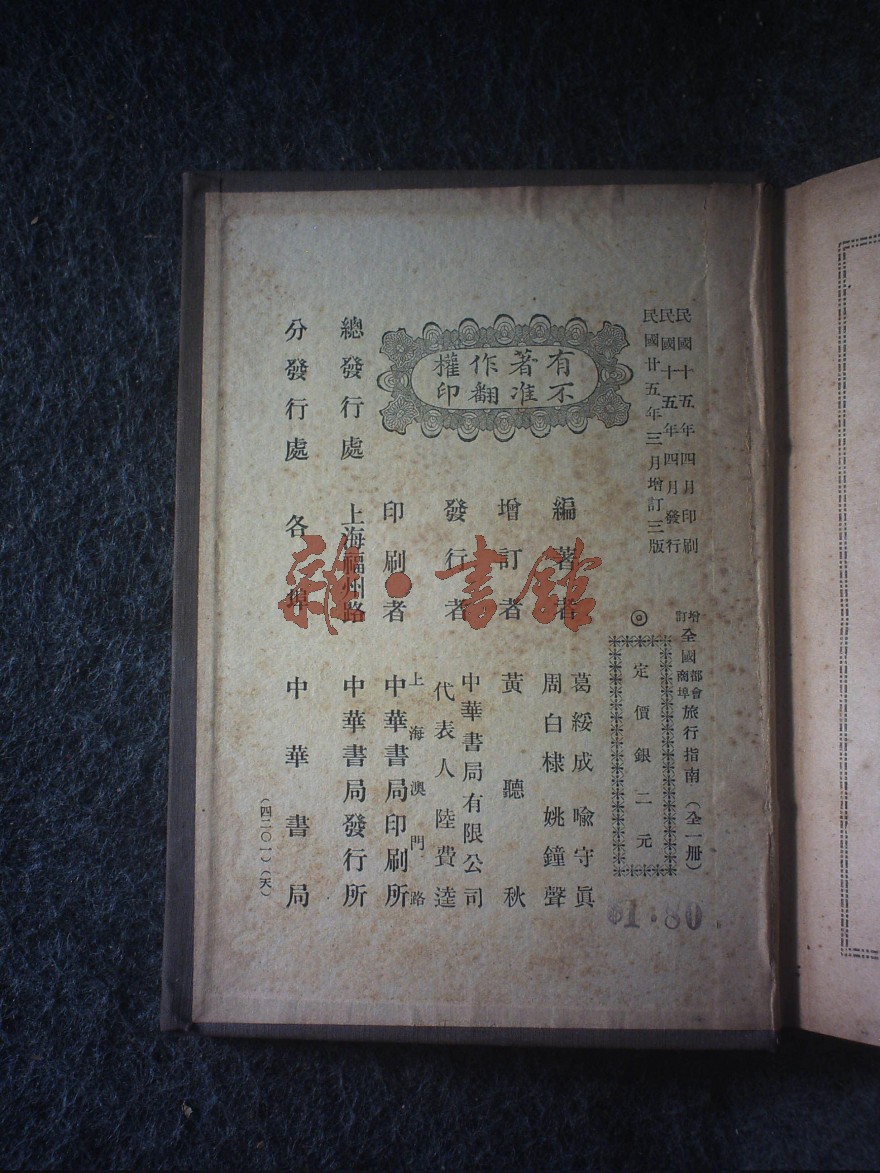 民國十五年四月印刷
民國十五年四月發行
民國廿五年三月增訂三版
增訂全國都會商埠旅行指南（全一册）
◎定價銀二元
$1.80
有不著准作翻權印
編著者 葛綏成 喻守眞 周白棣 姚鐘聲
增訂者 黃聽秋
發行者 中華書局有限公司 代表人陸費逵
印刷者 上海澳門路 中華書局印刷所
總發行處 上海福州路 中華書局發行所
分發行處 各埠 中華書局
（四二〇一）（天）
雜·書館